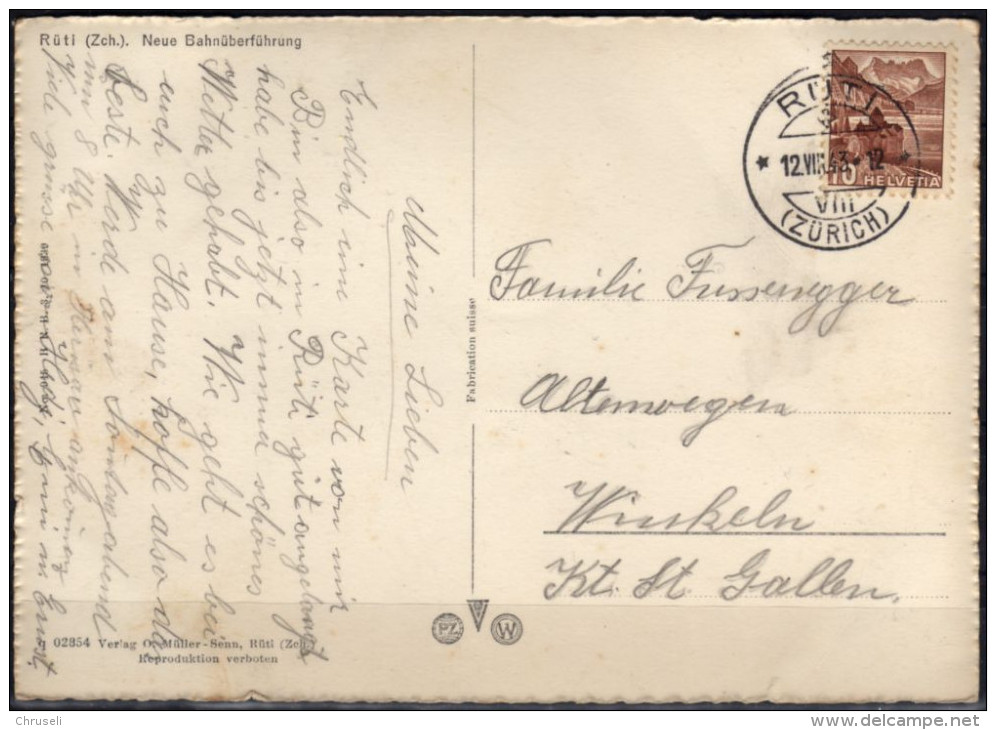 Rüti (Zch.). Neue Bahnüberführung
Meine Lieben
Endlich eine Karte von mir
Bin also in Rüti gut angelangt
habe bis jetzt immer schönes
Wetter gehabt. Wie geht es bei
euch zu Hause, hoffe also das
Beste. Werde am Sonntag abend
um 8 Uhr in ankommen
Viele grüsse
Ernst
Fabrication suisse
RÜTI
12.VIII.43 - 12
VIII
(ZÜRICH)
10
HELVETIA
Familie Fussenegger
Altenwegen
Winkeln
Kt. St. Gallen.
PZ
W
02854 Verlag O. Müller-Senn, Rüti (Zch.)
Reproduktion verboten
Chruseli
delcampe.net